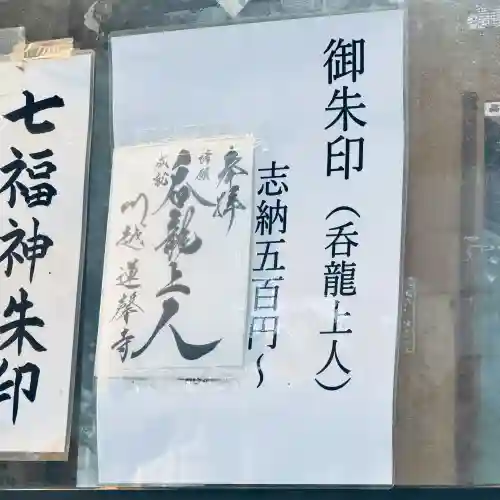 御朱印（呑龍上人）
志納五百円～
奉拝
呑龍上人
川越 蓮馨寺
七福神朱印